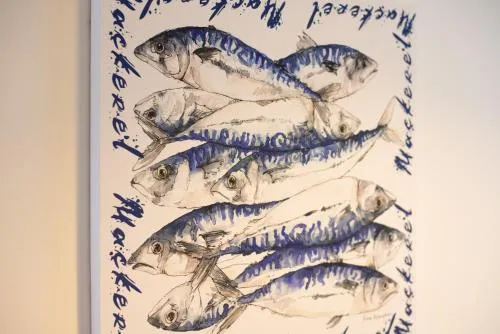 Mackerel
Mackerel
Mackerel
Mackerel
Mackerel
Mackerel
Macker